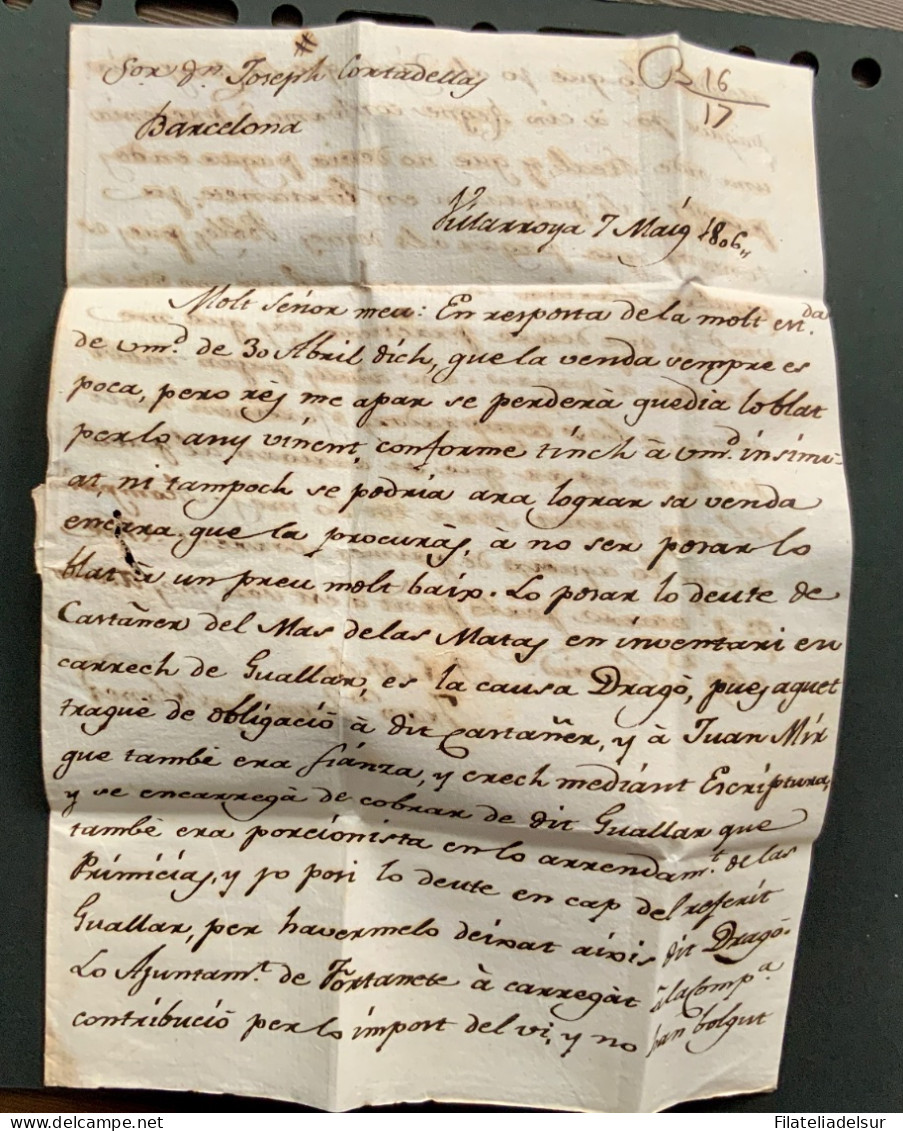 Sor. dn. Joseph Cortadellas
B 16
17
Barcelona
Vilarroya 7 Maig 1806,,
Molt Señor meu: En resposta de la molt estda.
de vmd. de 30 Abril dich, que la venda sempre es
poca, pero res me apar se perderà quedia lo blat
per lo any vinent, conforme tinch à vmd. insinu-
at, ni tampoch se podria ara lograr sa venda
encara que la procuràs, à no ser posar lo
blat à un preu molt baix. Lo posar lo deute de
Castañer del Mas de las Matas en inventari en
carrech de Guallar, es la causa Dragò, pues aquet
traguè de obligaciò à dit Castañer, y à Juan Mir
que també era fiánza, y crech mediánt Escriptura,
y se encarregà de cobrar de dit Guallar que
també era porcionista en lo arrendamt. de las
Primicias, y jo posi lo deute en cap del referit
Guallar, per havermelo deixat aixis dit Dragò.
Lo Ajuntamt. de Fortanete à carregàt à la Compa.
contribuciò per lo import del vi, y no han volgut
Filateliadelsur